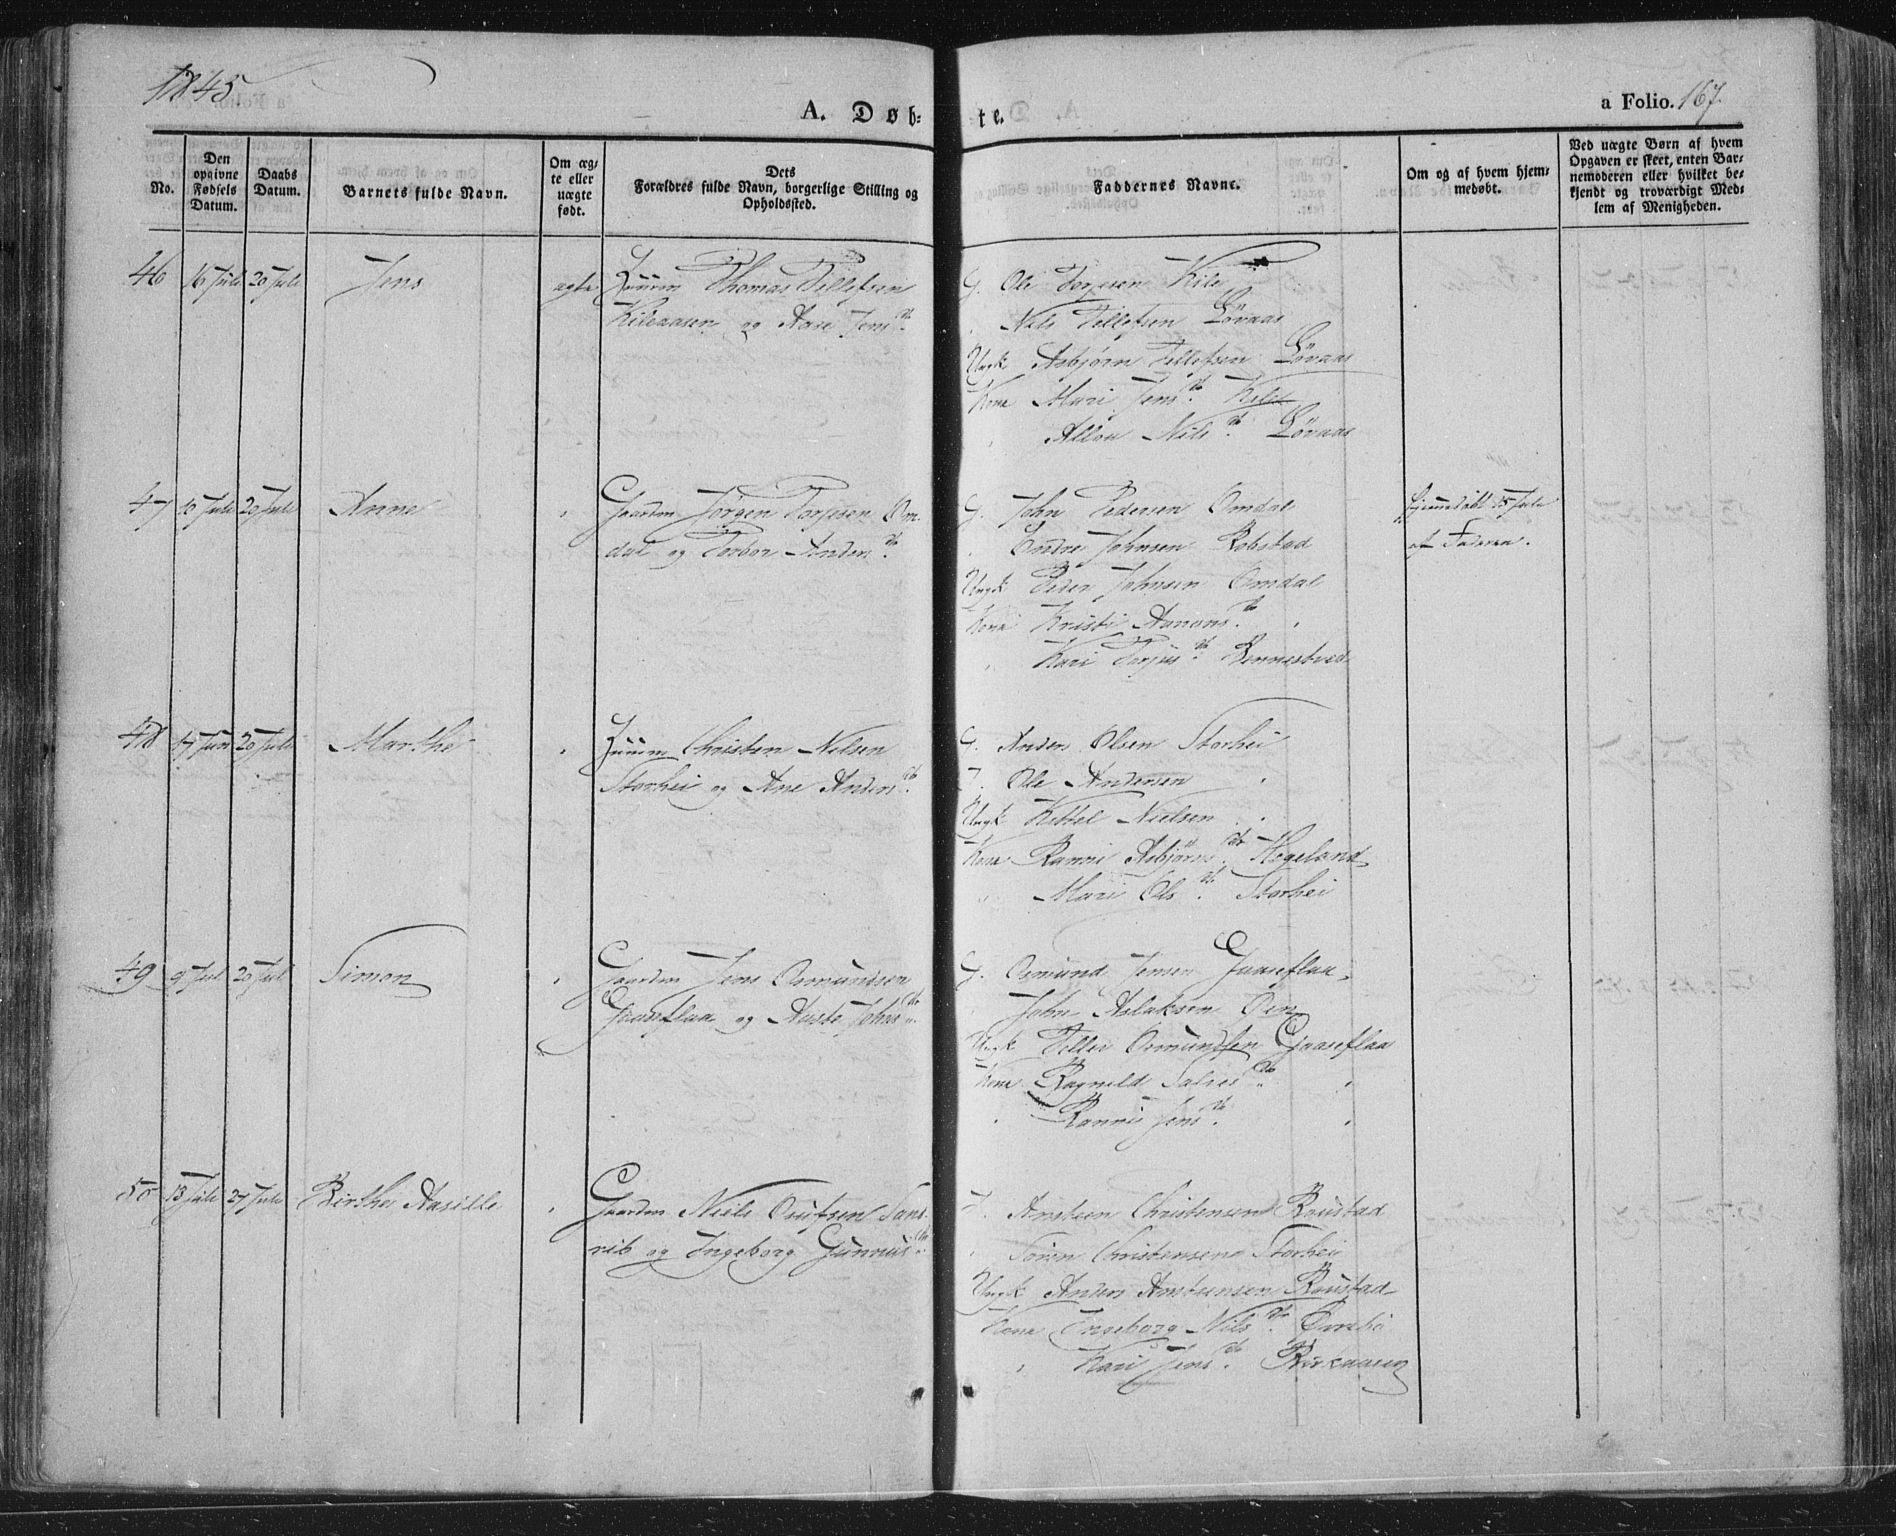 1845
A. Døb-
te.
a Folio. 167.
No.
Den opgivne Fødsels Datum.
Daabs Datum.
Barnets fulde Navn.
Om ægte eller uægte født.
Dets
Forældres fulde Navn, borgerlige Stilling og
Opholdssted.
Faddernes Navne.
Om og af hvem hjem-
medøbt.
Ved uægte Børn af hvem
Opgaven er skeet, enten Bar-
nemoderen eller hvilket be-
kjendt og troværdigt Med-
lem af Menigheden.
46 16 Juli 20 Juli Jens ægte Thomas Tellefsen
Kileaasen og Aase Jens dtr.
G. Ole Terjesen Kile
" Nils Tellefsen Løvaas
Ungk Asbjørn Tellefsen Løvaas
Kone Mari Jens dtr. Kile
" Nils dtr. Løvaas
47 10 Juli 20 Juli Anne " Gaardm Jørgen Torjesen Om-
dal og Torbor Anders dtr.
G. John Pedersen Omdal
" Endre Johnsen Robstad
Ungk Peder Johnsen Omdal
Kone Kristi Aanons dtr. "
" Kari Torjus dtr. Rennestved
Hjemmedøbt 15 Juli
af Faderen.
48 17 Juni 20 Juli Marthe " Christen Nilsen
Storhei og Ane Anders dtr.
G. Anders Olsen Storhei
F. Ole Andersen "
Ungk Kittel Nielsen "
Kone Ranni Asbjørns dtr. Hogeland
" Mari Ols dtr. Storhei
49 9 Jul 20 Jul Simon " Gaardm Jens Osmundsen
Gaaseflaa og Aaste Johns dtr.
G. Osmund Jensen Gaaseflaa
" John Aslaksen Øen
Ungk Tellev Osmundsen Gaaseflaa
Kone Ragnild Salves dtr. "
" Ranni Jens dtr. "
50 13 Juli 27 Juli Birthe Aasille " Gaardm Niels Knutsen
og Ingeborg Gunnus dtr.
F. Ansteen Christensen Roustad
" Søren Christensen Storhei
Ungk Anders Anstensen Roustad
Kone Ingeborg Nils dtr.
" Kari Jens dtr. Birkaasen